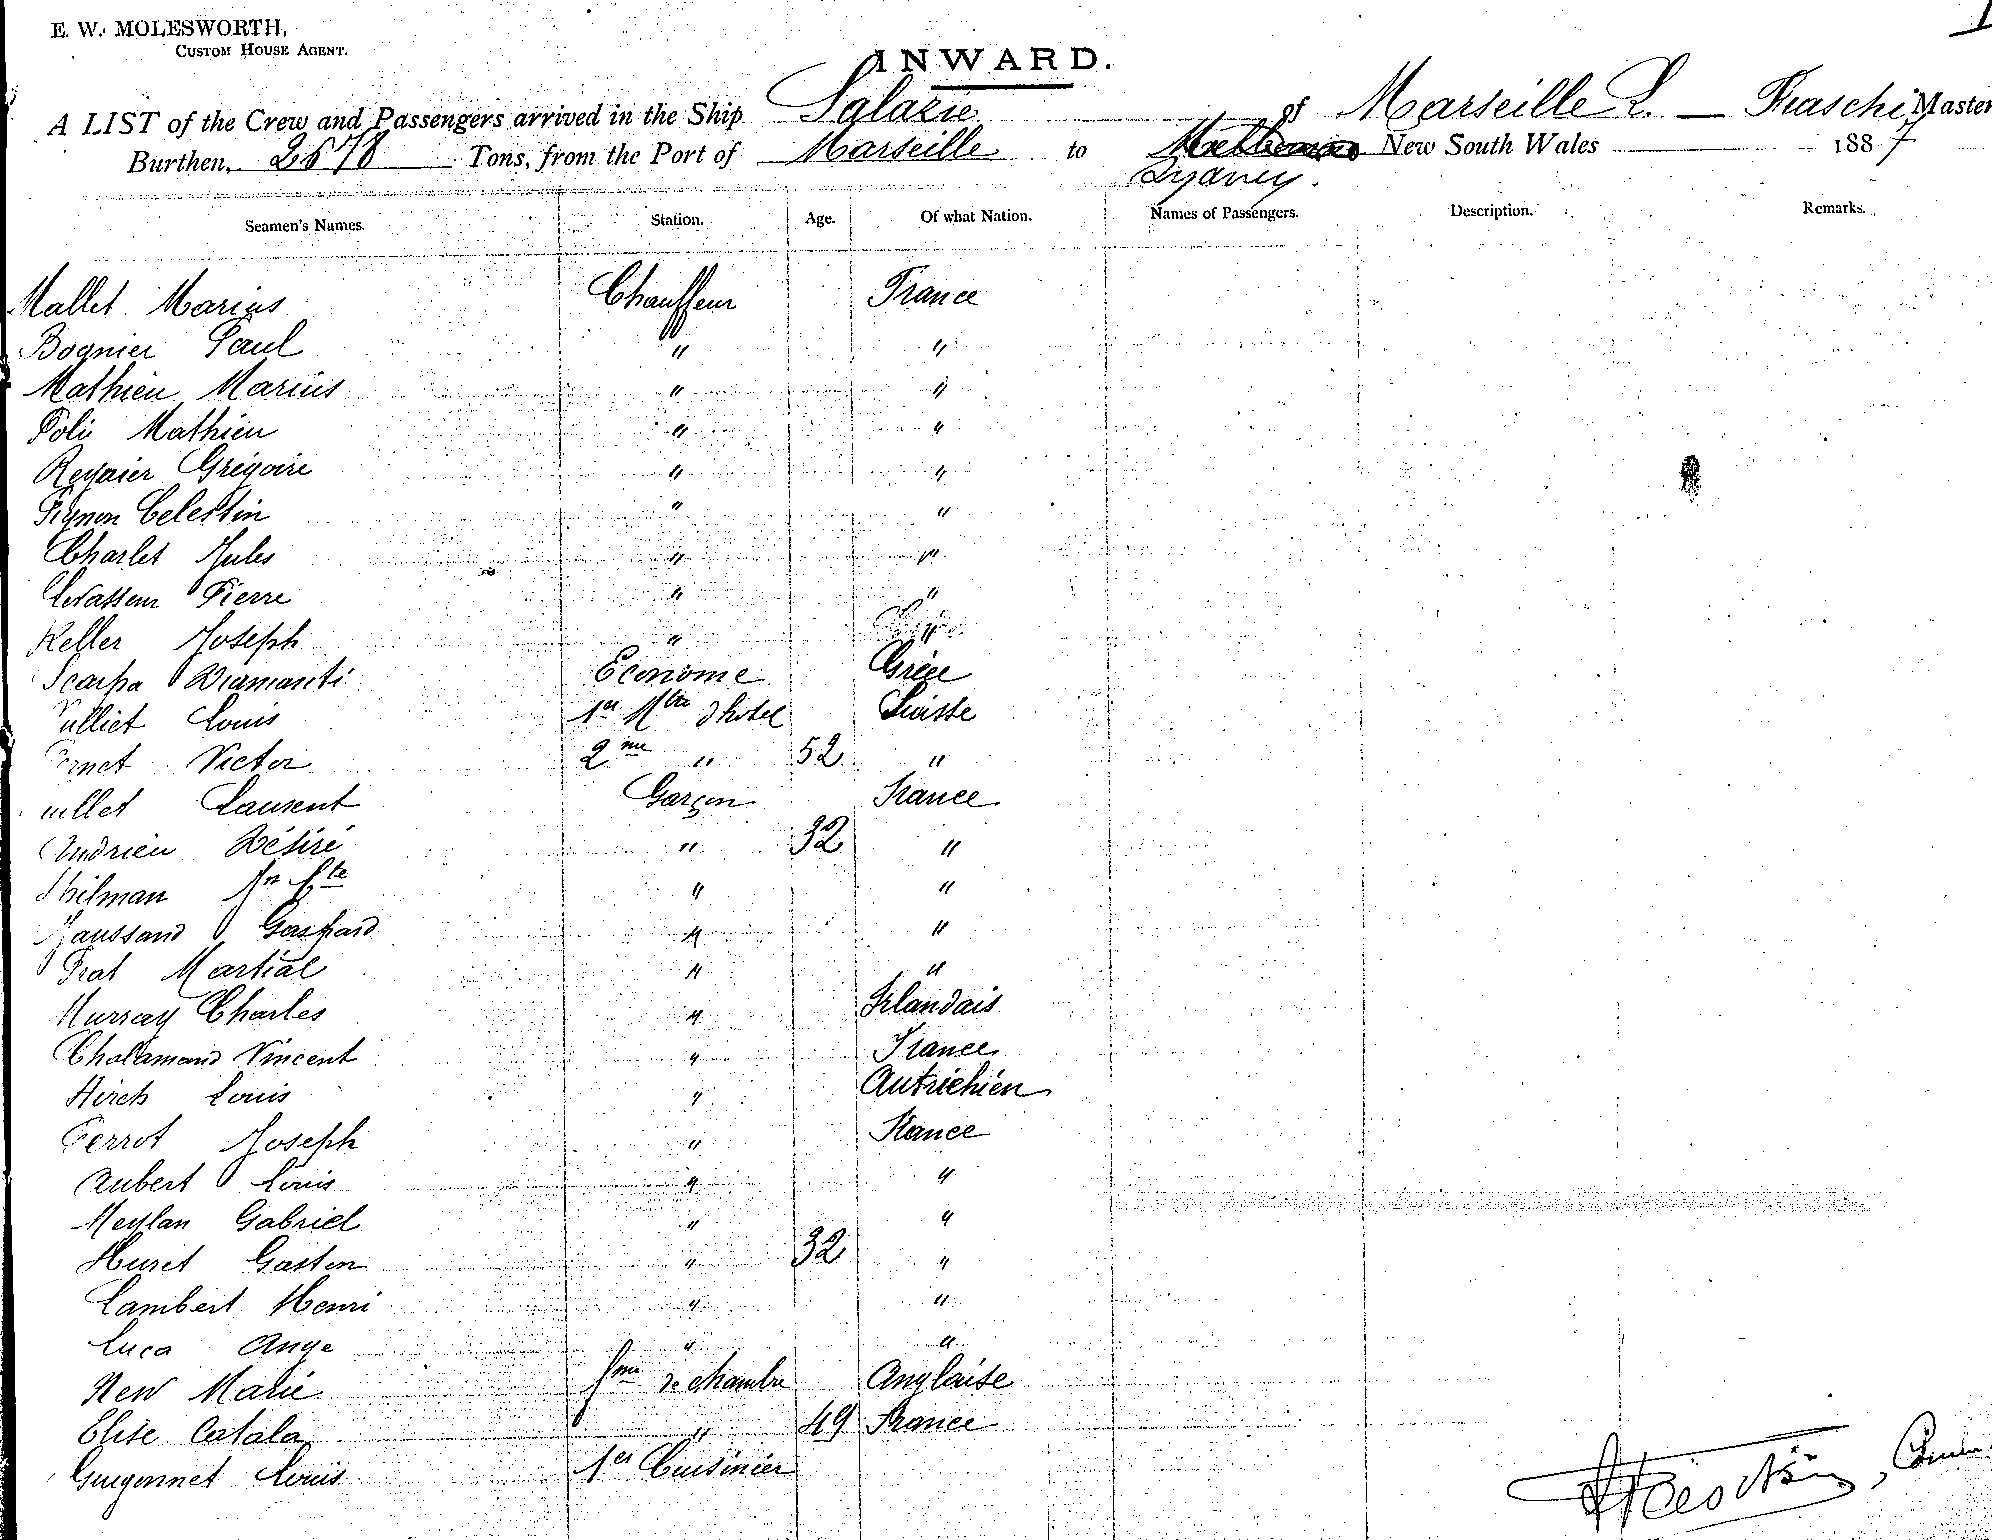 E. W. MOLESWORTH,
CUSTOM HOUSE AGENT.
1
INWARD.
A LIST of the Crew and Passengers arrived in the Ship Salazie of Marseille L. — Fiaschi Master
Burthen, 2678 Tons, from the Port of Marseille to Melbourne New South Wales 1887
Sydney.
Seamen's Names. Station. Age. Of what Nation. Names of Passengers. Description. Remarks.
Mallet Marius Chauffeur France
Bognier Paul " "
Mathieu Marius " "
Poli Mathieu " "
Regnier Grégoire " "
Pignon Celestin " "
Charlet Jules " "
Levasseur Pierre " "
Keller Joseph " "
Scarpa Diamanti Econome Grèce
Vulliet Louis 1er Mtre d'hotel Suisse
Pernet Victor 2me " 52 "
ullet Laurent Garçon France
Andrieu Désiré " 32 "
Thilman Jn Bte " "
Jaussand Gaspard " "
Prat Martial " "
Murray Charles " Irlandais
Chalamand Vincent " France
Hirch Louis " Autrichien
Perrot Joseph " France
Aubert Louis " "
Meylan Gabriel " "
Huret Gaston " 32 "
Lambert Henri " "
Luca Ange " "
New Marie fme de chambre Anglaise
Elise Catala " 49 France
Guigonnet Louis 1er Cuisinier